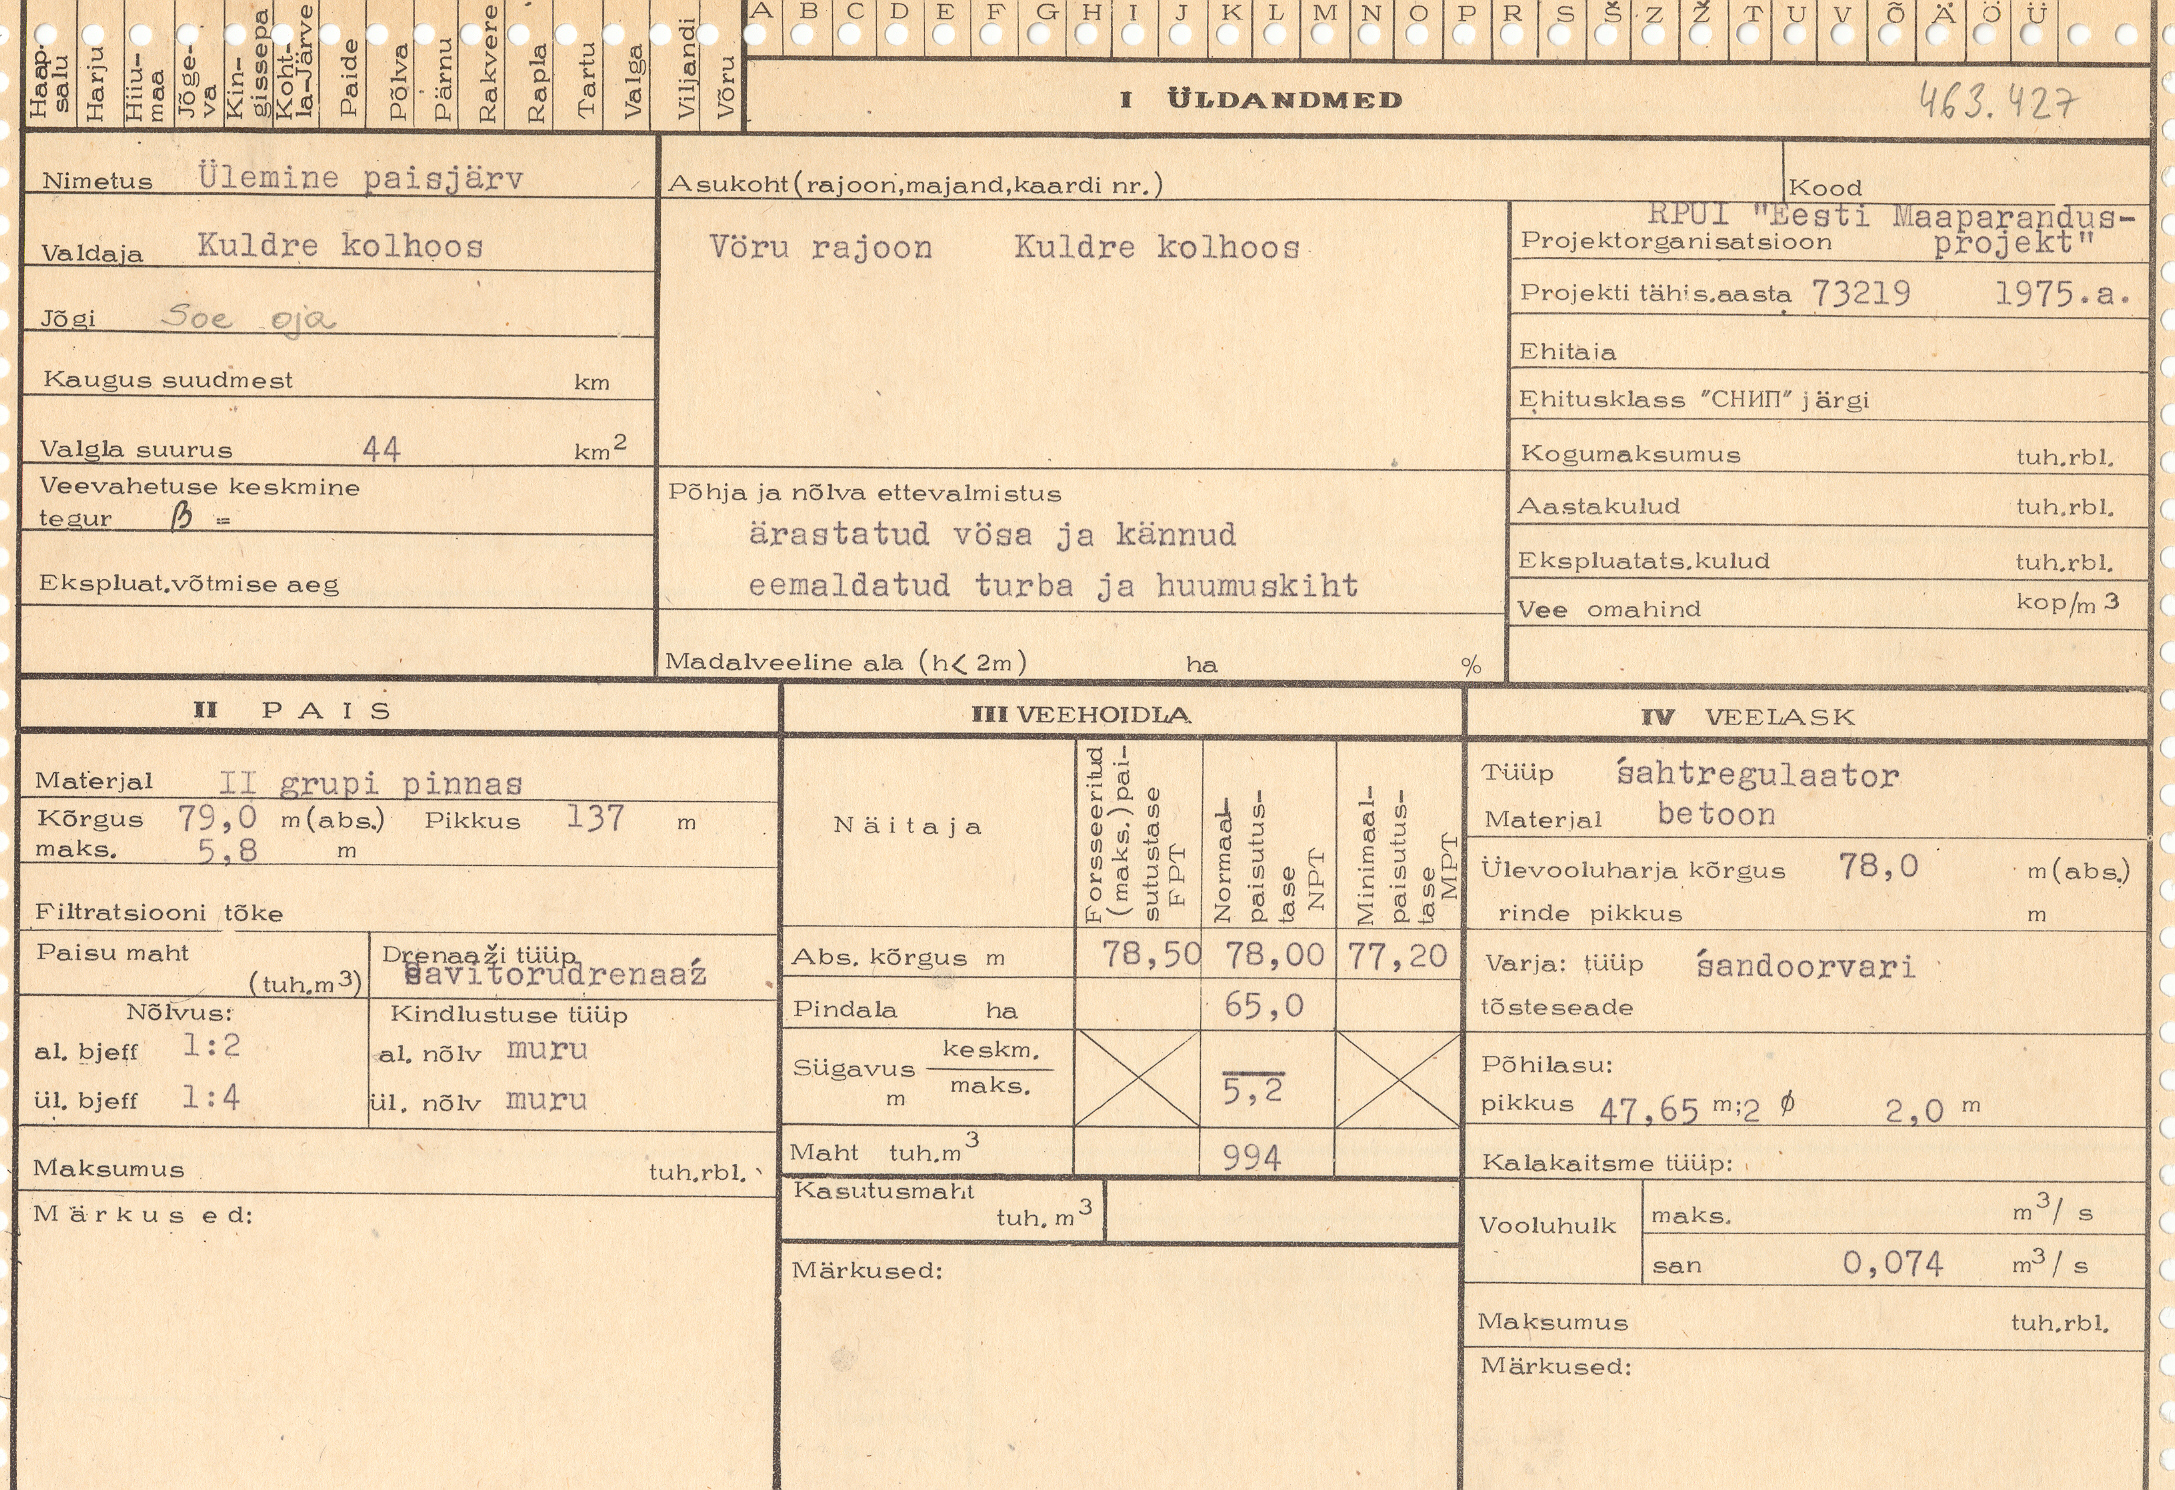 A B C D E F G H I J K L M N O P R S Š Z Ž T U V Õ Ä Ö Ü
Haap-
salu
Harju
Hiiu-
maa
Jõge-
va
Kin-
gissepa
Koht-
la-Järve
Paide
Põlva
Pärnu
Rakvere
Rapla
Tartu
Valga
Viljandi
Võru
I ÜLDANDMED
463.427
Nimetus Ülemine paisjärv
Valdaja Kuldre kolhoos
Jõgi Soe oja
Kaugus suudmest km
Valgla suurus 44 km2
Veevahetuse keskmine
tegur β =
Ekspluat.võtmise aeg
Asukoht(rajoon,majand,kaardi nr.)
Vöru rajoon Kuldre kolhoos
Põhja ja nõlva ettevalmistus
ärastatud vösa ja kännud
eemaldatud turba ja huumuskiht
Madalveeline ala (h< 2m) ha %
Kood
RPUI "Eesti Maaparandus-
Projektorganisatsioon projekt"
Projekti tähis.aasta 73219 1975.a.
Ehitaja
Ehitusklass "СНИП" järgi
Kogumaksumus tuh.rbl.
Aastakulud tuh.rbl.
Ekspluatats.kulud tuh.rbl.
Vee omahind kop/m3
II PAIS
Materjal II grupi pinnas
Kõrgus 79,0 m(abs.) Pikkus 137 m
maks. 5,8 m
Filtratsiooni tõke
Paisu maht
(tuh.m3)
Drenaaži tüüp
savitorudrenaaź
Nõlvus:
al. bjeff 1:2
ül. bjeff 1:4
Kindlustuse tüüp
al. nõlv muru
ül. nõlv muru
Maksumus tuh.rbl.
Märkused:
III VEEHOIDLA
Näitaja
Forsseeritud
(maks.)pai-
sutustase
FPT
Normaal-
paisutus-
tase
NPT
Minimaal-
paisutus-
tase
MPT
Abs. kõrgus m 78,50 78,00 77,20
Pindala ha 65,0
Sügavus keskm.
m maks. 5,2
Maht tuh.m3 994
Kasutusmaht
tuh.m3
Märkused:
IV VEELASK
Tüüp śahtregulaator
Materjal betoon
Ülevooluharja kõrgus 78,0 m(abs.)
rinde pikkus m
Varja: tüüp śandoorvari
tõsteseade
Põhilasu:
pikkus 47,65 m;2 ø 2,0 m
Kalakaitsme tüüp:
Vooluhulk
maks. m3/ s
san 0,074 m3/ s
Maksumus tuh.rbl.
Märkused: